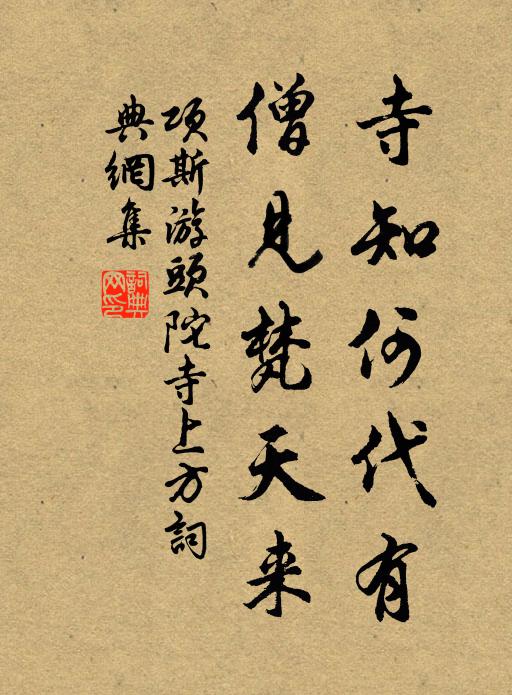 寺知何代有
僧見梵天来
項斯游頭陀寺上方詞
典網集
詞典
网印